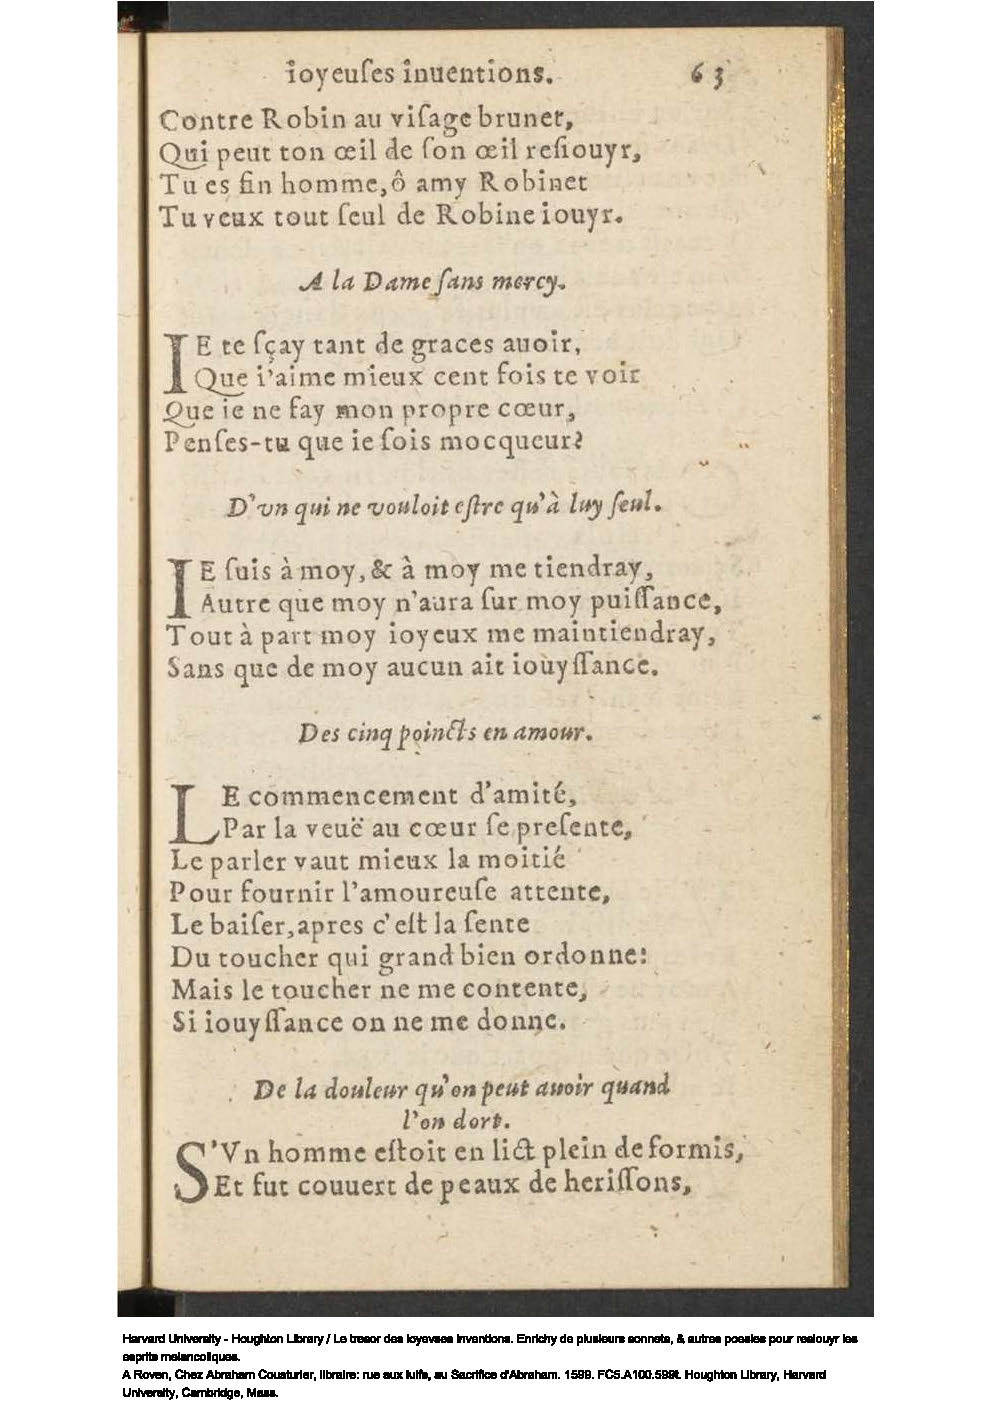 ioyeuſes inuentions. 63
Contre Robin au viſage brunet,
Qui peut ton œil de ſon œil reſiouyr,
Tu es fin homme, ô amy Robinet
Tu veux tout ſeul de Robine iouyr.
A la Dame ſans mercy.
IE te ſçay tant de graces auoir,
Que i'aime mieux cent fois te voir
Que ie ne fay mon propre cœur,
Penſes-tu que ie ſois mocqueur?
D'vn qui ne vouloit eſtre qu'à luy ſeul.
IE ſuis à moy, & à moy me tiendray,
Autre que moy n'aura ſur moy puiſſance,
Tout à part moy ioyeux me maintiendray,
Sans que de moy aucun ait iouyſſance.
Des cinq poincts en amour.
LE commencement d'amité,
Par la veuë au cœur ſe preſente,
Le parler vaut mieux la moitié
Pour fournir l'amoureuſe attente,
Le baiſer, apres c'eſt la ſente
Du toucher qui grand bien ordonne:
Mais le toucher ne me contente,
Si iouyſſance on ne me donne.
De la douleur qu'on peut auoir quand
l'on dort.
S'Vn homme eſtoit en lict plein de formis,
Et fut couuert de peaux de heriſſons,
Harvard University - Houghton Library / Le tresor des ioyevses inventions. Enrichy de plusieurs sonnets, & autres poesies pour resiouyr les
esprits melancoliques.
A Roven, Chez Abraham Cousturier, libraire: rue aux Iuifs, au Sacrifice d'Abraham. 1599. FC5.A100.599t. Houghton Library, Harvard
University, Cambridge, Mass.